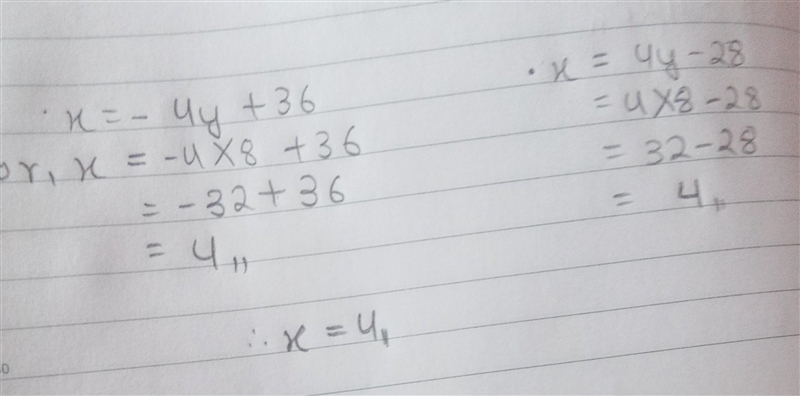 . x = - 4y + 36
or, x = -4 X 8 + 36
= -32 + 36
= 4,,
. x = 4y - 28
= 4 X 8 - 28
= 32 - 28
= 4,,
∴ x = 4,,